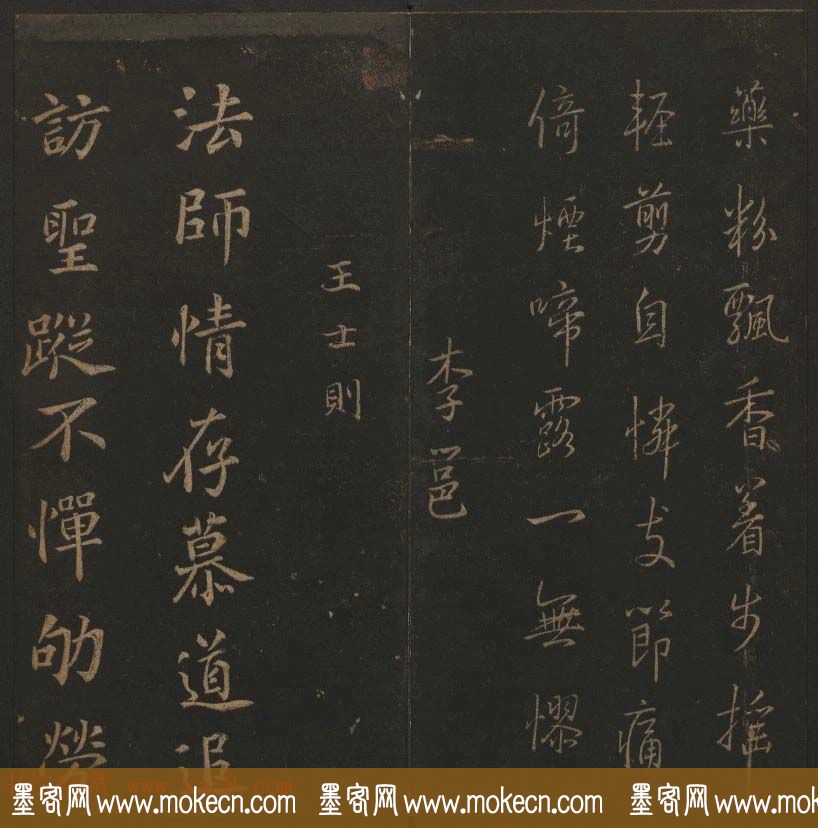 藥粉飄香着步摇
輕剪自憐支節痛
倚煙啼露一無憀
李邕
王士則
法師情存慕道追
訪聖蹤不憚劬勞
墨客网 www.mokecn.com 墨客网 www.mokecn.com 墨客网 www.mokecn.com